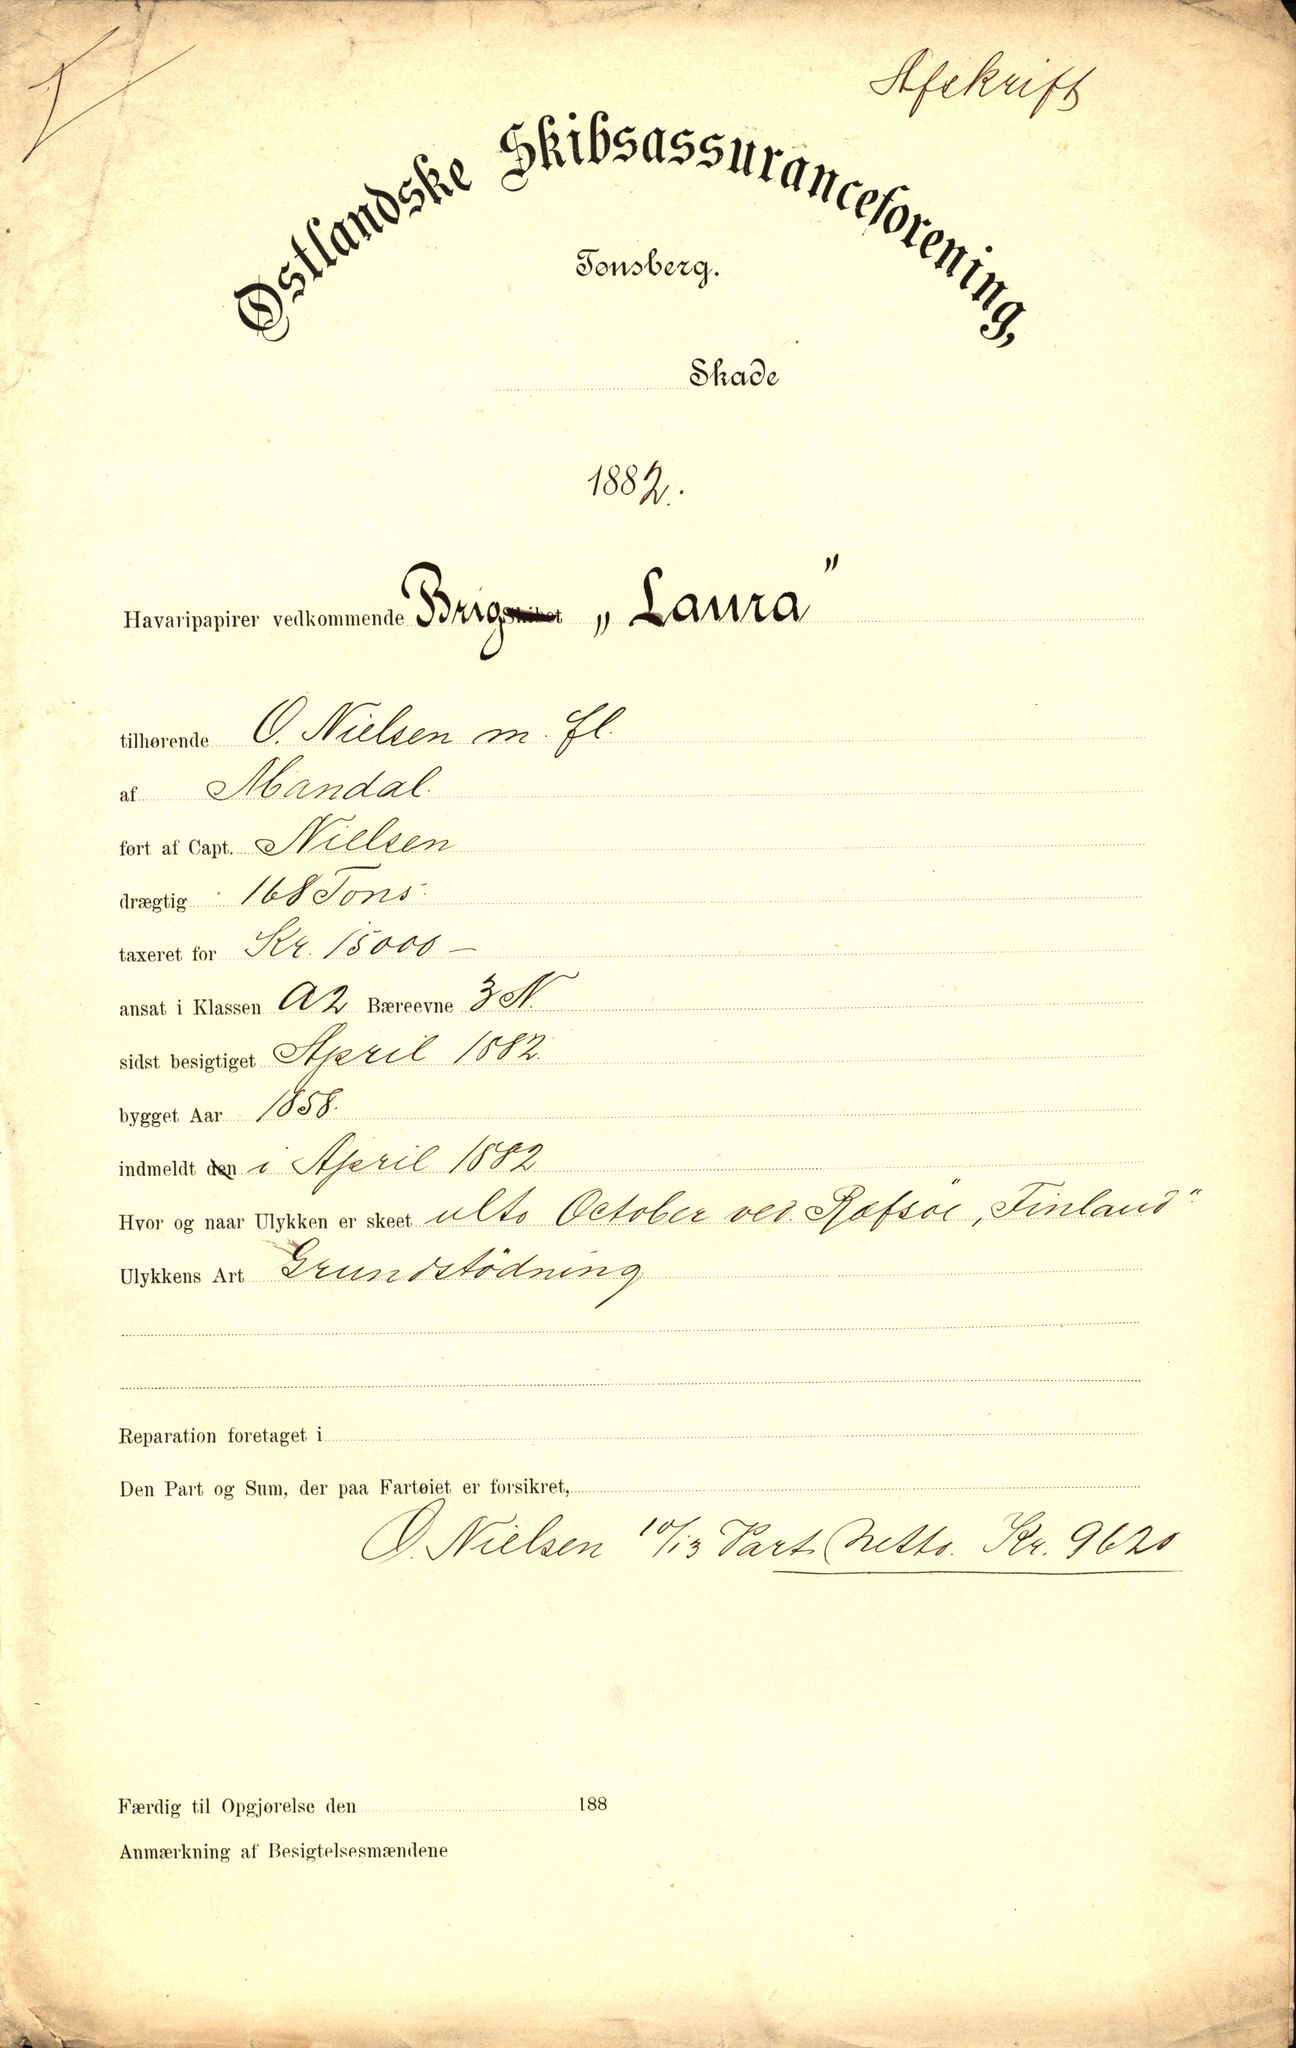 Afskrift
Østlandske Skibsassuranceforening,
Tønsberg.
Skade
1882.
Havaripapirer vedkommende Brig Skibet „Laura"
tilhørende O. Nielsen m. fl.
af Mandal.
ført af Capt. Nielsen
drægtig 168 Tons
taxeret for Kr. 15000 —
ansat i Klassen A2 Bæreevne 3 N.
sidst besigtiget April 1882.
bygget Aar 1858.
indmeldt den i April 1882
Hvor og naar Ulykken er skeet ulto October ved Räfsöe, „Finland"
Ulykkens Art Grundstödning
Reparation foretaget i
Den Part og Sum, der paa Fartøiet er forsikret,
O. Nielsen 10/13 Part Netto. Kr. 9620
Færdig til Opgjørelse den 188
Anmærkning af Besigtelsesmændene